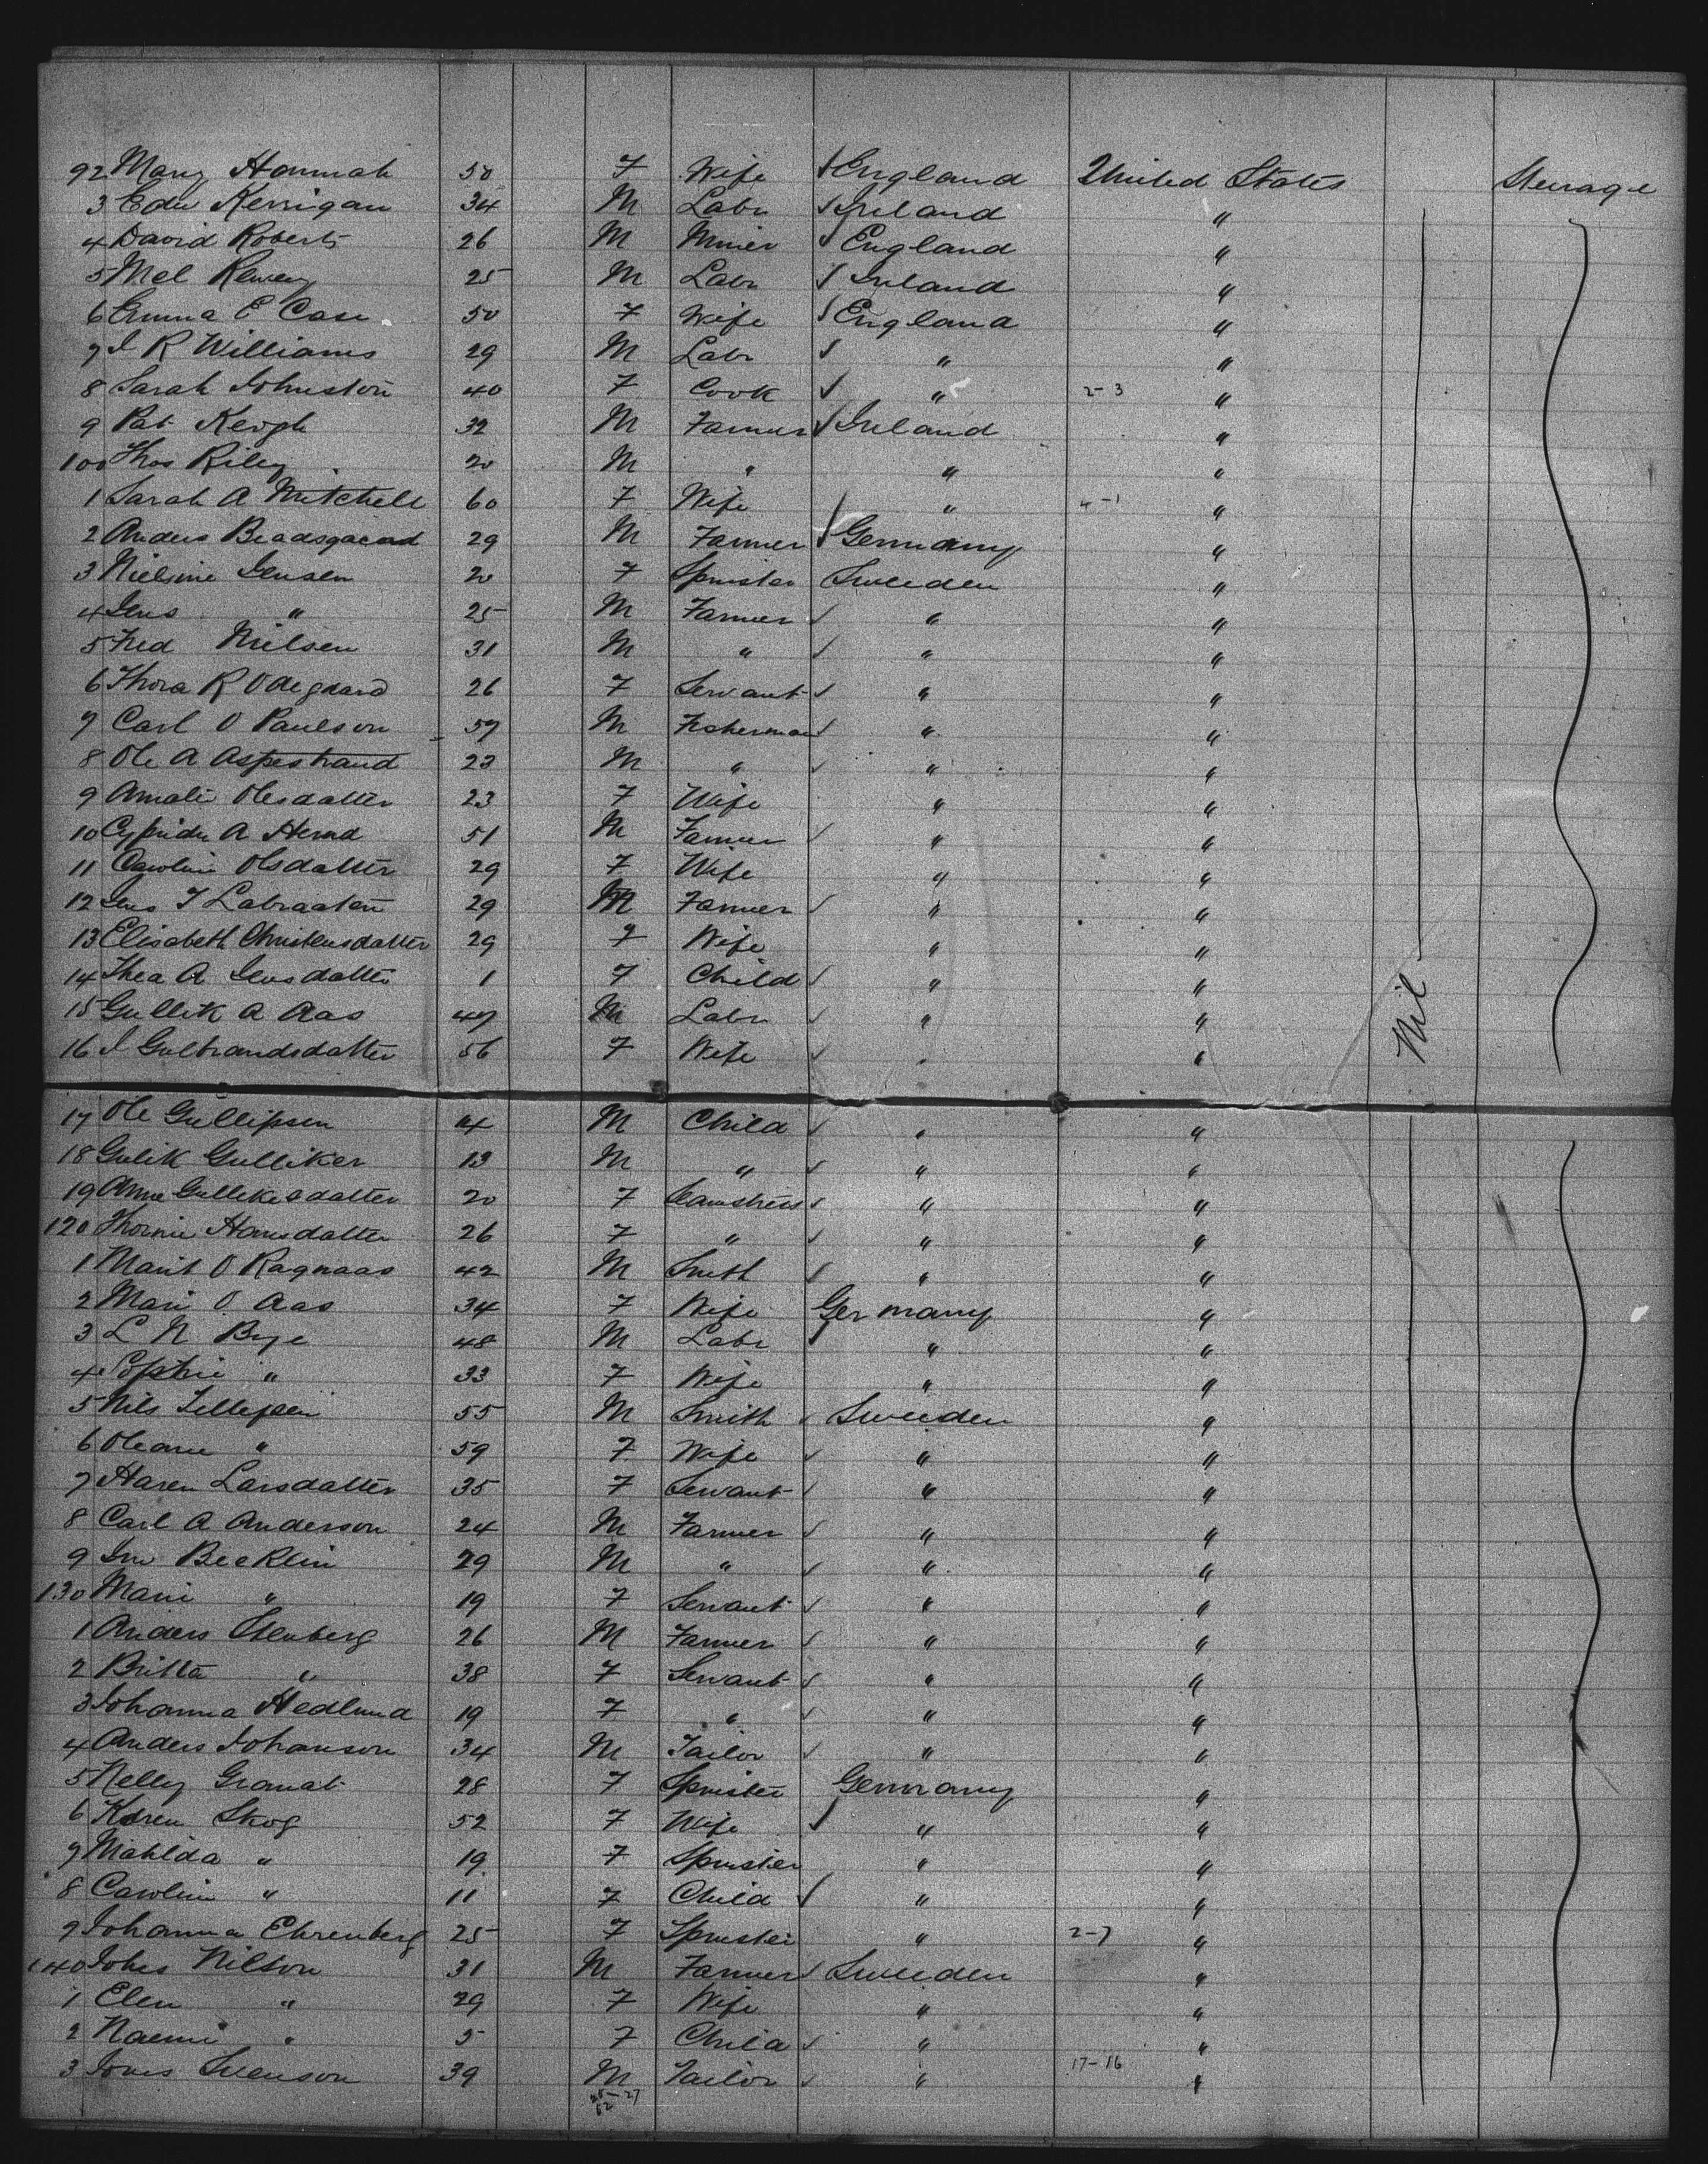 92 Mary Hannah 50 F Wife √ England United States Steerage
3 Edw Kerrigan 34 M Labr √ Ireland "
4 David Roberts 26 M Miner √ England "
5 Mel 25 M Labr √ Ireland "
6 Emma E Case 50 F Wife √ England "
7 I R Williams 29 M Labr √ " "
8 Sarah Johnston 40 F Cook √ " 2-3 "
9 Pat Keogh 32 M Farmer √ Ireland "
100 Thos Riley 20 M " " "
1 Sarah A Mitchell 60 F Wife " 4-1 "
2 Anders 29 M Farmer √ Germany "
3 Nielsine Jensen 20 F Spinster Sweeden "
4 Jens " 25 M Farmer √ " "
5 Fred Nielsen 31 M " √ " "
6 Thora R Odegaard 26 F Servant √ " "
7 Carl O Paulson 57 M Fisherman √ " "
8 Ole A Aspestrand 23 M " √ " "
9 Amalie Olesdatter 23 F Wife " "
10 A 51 M Farmer √ " "
11 Caroline Olsdatter 29 F Wife " "
12 Jens T Labraaten 29 M Farmer √ " "
13 Elisabeth Christensdatter 29 F Wife " "
14 Thea A Jensdatter 1 F Child √ " "
15 Gullik A Aas 47 M Labr √ " " Nil
16 I Gulbrandsdatter 56 F Wife √ " "
17 Ole Gullipsen 14 M Child √ " "
18 Gulik Gulliker 13 M " √ " "
19 Anne Gullekesdatter 20 F Seamstress √ " "
120 Hansdatter 26 F " √ " "
1 Marit O Ragnaas 42 M Smith √ " "
2 Mari O Aas 34 F Wife Germany "
3 L N Bye 48 M Labr √ " "
4 Sophie " 33 F Wife " "
5 Nils 55 M Smith √ Sweeden "
6 Oleane " 59 F Wife √ " "
7 Haren Larsdatter 35 F Servant √ " "
8 Carl A Anderson 24 M Farmer √ " "
9 Jno Becklin 29 M " √ " "
130 Marie " 19 F Servant √ " "
1 Anders Stenberg 26 M Farmer √ " "
2 Britta " 38 F Servant √ " "
3 Johanna Hedlund 19 F " √ " "
4 Anders Johanson 34 M Tailor √ " "
5 Nelly Granat 28 F Spinster Germany "
6 Karen Skog 52 F Wife √ " "
7 Mahlda " 19 F Spinster " "
8 Caroline " 11 F Child √ " "
9 Johanna Ehrenberg 25 F Spinster " 2-7 "
140 Johs Nilson 31 M Farmer √ Sweeden "
1 Elen " 29 F Wife " "
2 Naemi " 5 F Child √ " "
3 Jons Svenson 39 M Tailor √ " 17-16 "